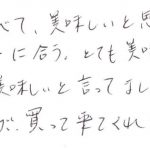 べて、美味しいと思
に合う。とても美味
美味しいと言ってまし
が、買って来てくれ